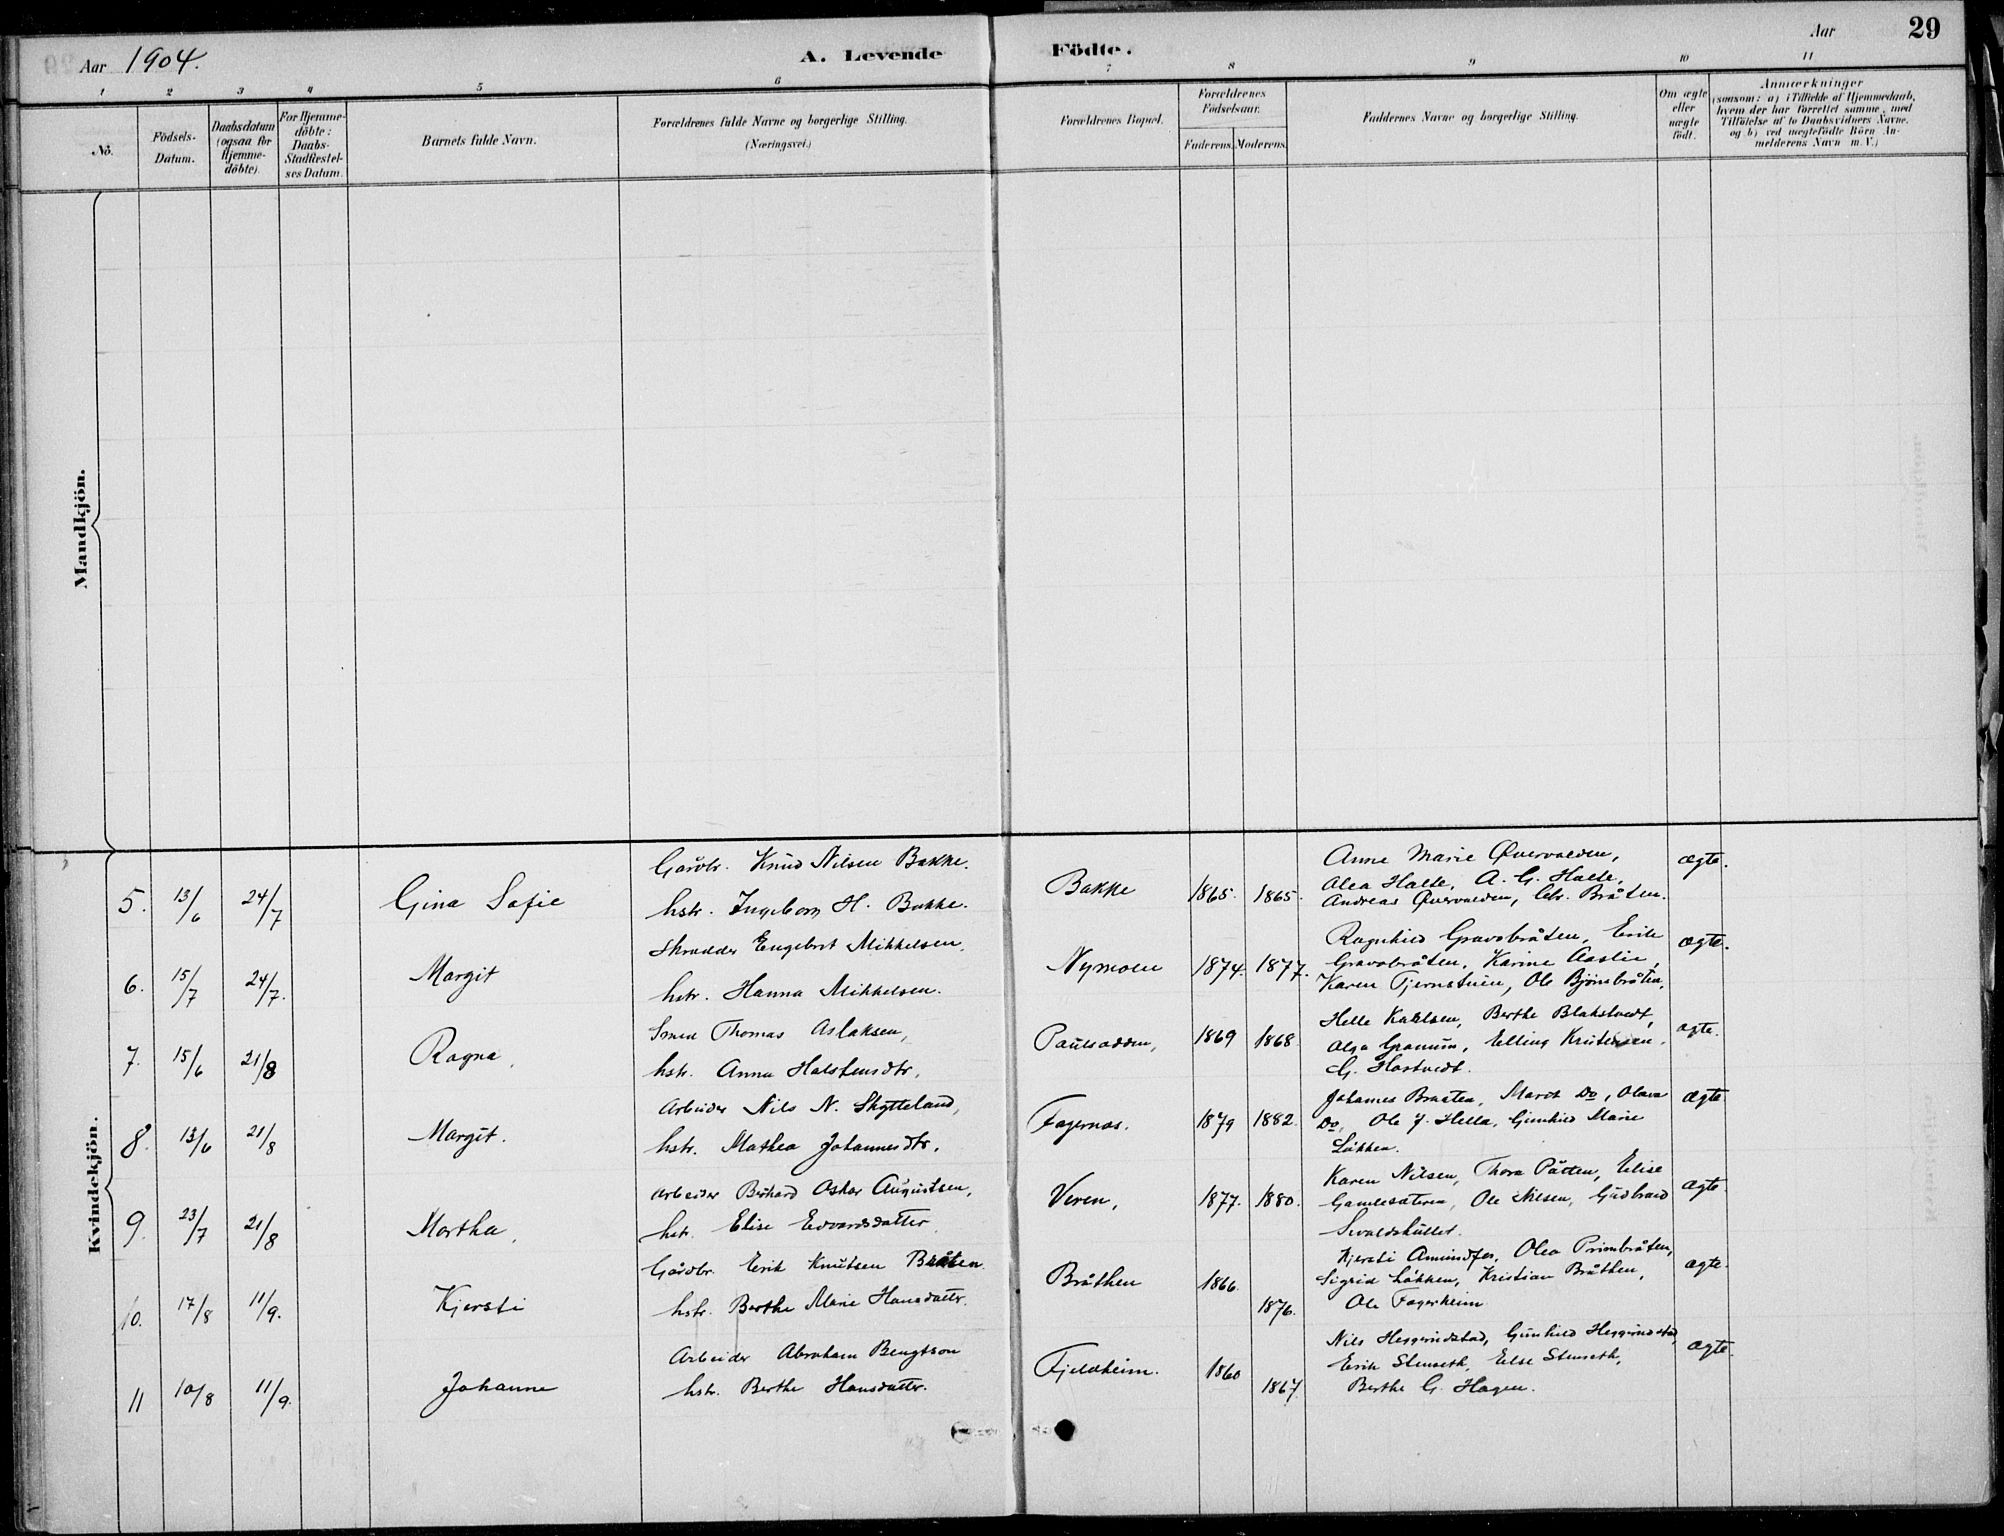 Aar 1904.
A. Levende Födte.
Aar
29
1 2 3 4 5 6 7 8 9 10 11
No.
Födsels-Datum.
Daabsdatum (ogsaa for Hjemme-döbte)
For Hjemme-döbte: Daabs-Stadfæstel-ses Datum.
Barnets fulde Navn.
Forældrenes fulde Navne og borgerlige Stilling.
(Næringsvei.)
Forældrenes Bopæl.
Forældrenes Födselsaar.
Faderens. Moderens.
Faddernes Navne og borgerlige Stilling.
Om ægte eller uægte födt.
Anmærkninger
(saasom: a) i Tilfælde af Hjemmedaab, hvem der har forrettet samme, med Tilföielse af to Daabsvidners Navne. og b) ved uægtefödte Börn An-melderens Navn m. V.)
Mandkjön.
Kvindekjön.
5. 13/6 24/7 Gina Sofie
Gårdbr. Knud Nilsen Bakke.
hstr. Ingeborg H. Bakke.
Bakke 1865. 1865.
Anne Marie Qvervolden,
Olea Halte, A. G. Halte,
Andreas Qvervolden, Chr. Bråten.
ægte.
6. 15/7 24/7. Margit
Skrædder Engebret Mikkelsen,
hstr. Hanna Mikkelsen.
Nymoen 1874. 1877.
Ragnhild Gravsbråten, Erik
Gravsbråten, Karine Aaslie,
Karen Tjernstuen, Ole Björnbråten,
ægte.
7. 15/6 21/8 Ragna,
Smed Thomas Aslaksen,
hstr. Anna Halstensdtr,
1869 1868.
Helle Karlsen, Berthe Blakstvedt,
Olga Granum, Elling Kristensen,
G. Hostvedt.
ægte.
8. 13/6 21/8 Margit.
Arbeider Nils N. Skytteland,
hstr. Mathea Johannesdtr,
Fagernas. 1879 1882.
Johannes Braaten, Marit Do, Olava
Do, Ole J. Hella, Gunhild Marie
Løkken.
ægte
9. 23/7 21/8 Martha,
Arbeider Bernhard Oskar Augustsen,
hstr. Elise Edvardsdatter
Veren, 1877. 1880.
Karen Nilsen, Thora Påtten, Elise
Gamlesæteren, Ole Nilsen, Gudbrand
ægte
10. 17/8 11/9. Kjersti
Gårdbr. Erik Knutsen Bråten
hstr. Berthe Marie Hansdatter.
Bråthen 1866. 1876.
Kjersti Amundfos, Olea Primbråten,
Sigrid Løkken, Kristian Bråthen,
Ole Fagerheim
ægte.
11 10/8 11/9. Johanne
Arbeider Abraham Bengtson
hstr. Berthe Hansdatter.
Fjeldheim. 1860 1867
Nils Heggrindstad, Gunhild Heggrindstad,
Erik Stenseth, Else Stenseth,
Berthe G. Hagen.
ægte.